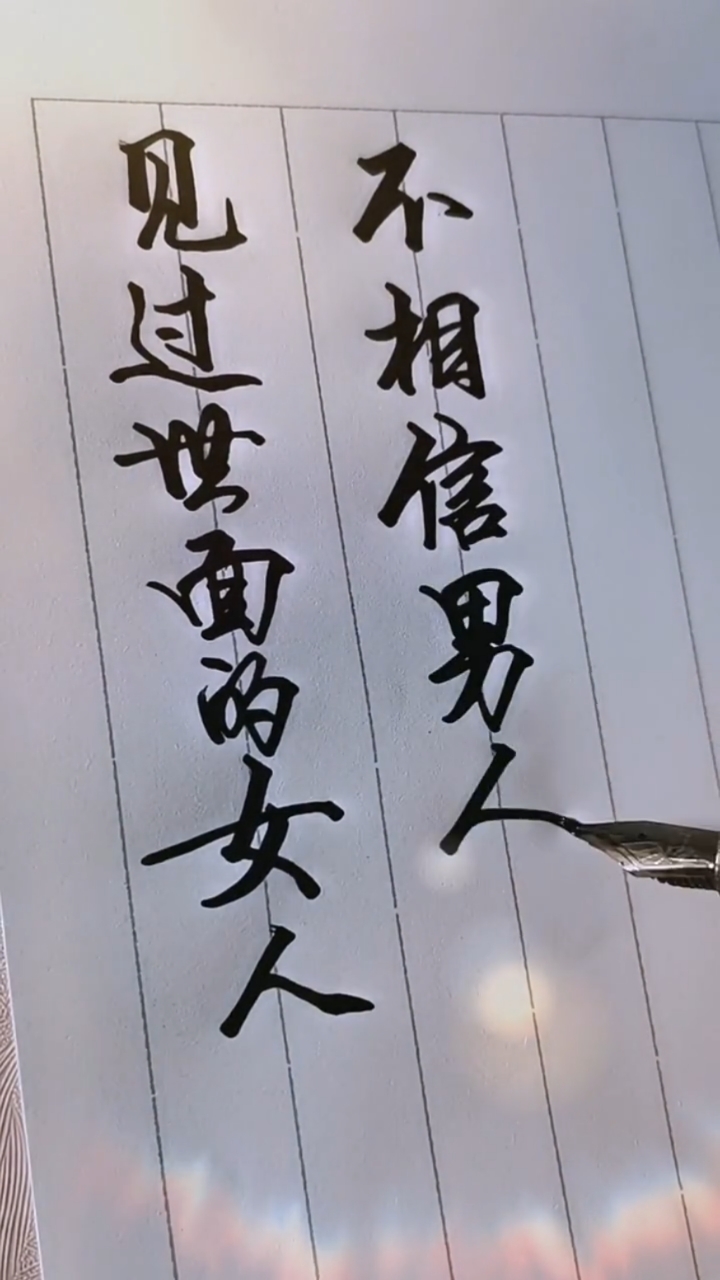 见过世面的女人
不相信男人